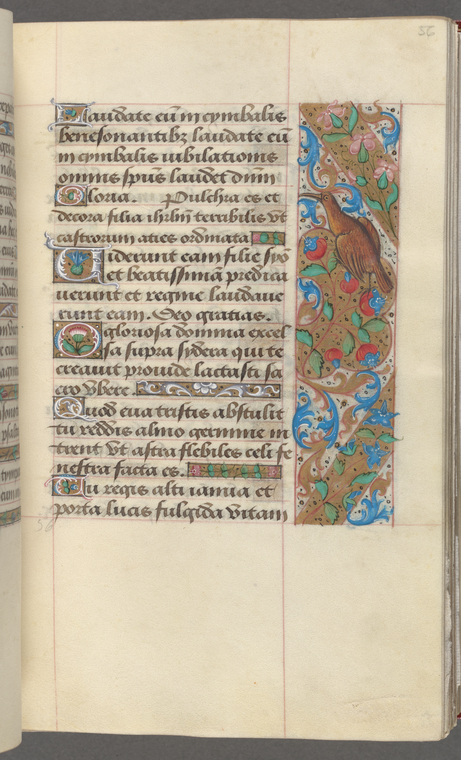 56
Laudate eū in cymbalis
benesonantibz laudate eū
in cymbalis iubilationis
omnis spūs laudet dnm̄
Gloria. Pulchra es et
decora filia ihrlm̄ terribilis vt
castrorum acies ordinata
Viderunt eam filie syo
et beatissimā predica
uerunt et regine laudaue
runt eam. Deo gratias.
O gloriosa domina excel
sa supra sydera qui te
creauit prouide lactasti sa
cro vbere
Quod eua tristis abstulit
tu reddis almo germine in
trent vt astra flebiles celi fe
nestra facta es.
Tu regis alti ianua et
porta lucis fulgida vitam